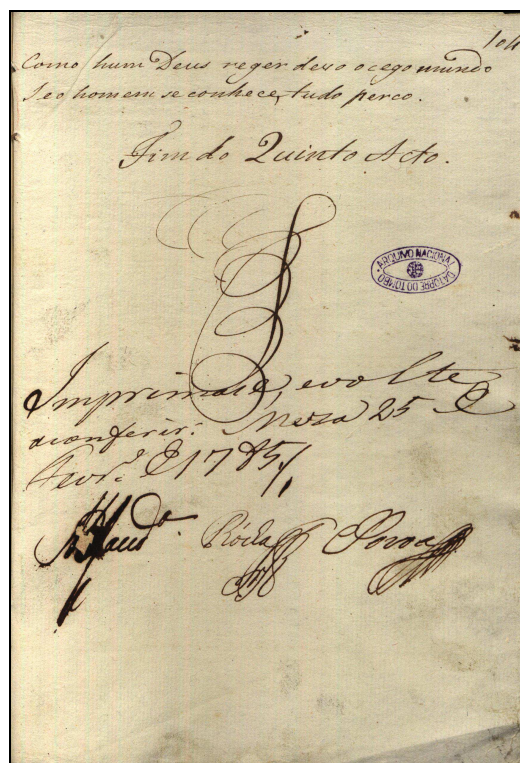 104
Como hum Deus reger devo o cego mundo
Se o homem se conhece, tudo perco.
Fim do Quinto Acto.
ARQUIVO NACIONAL
DA TORRE DO TOMBO
Imprimase, e volte
a conferir: Meza 25 de
Fevr.º de 1785